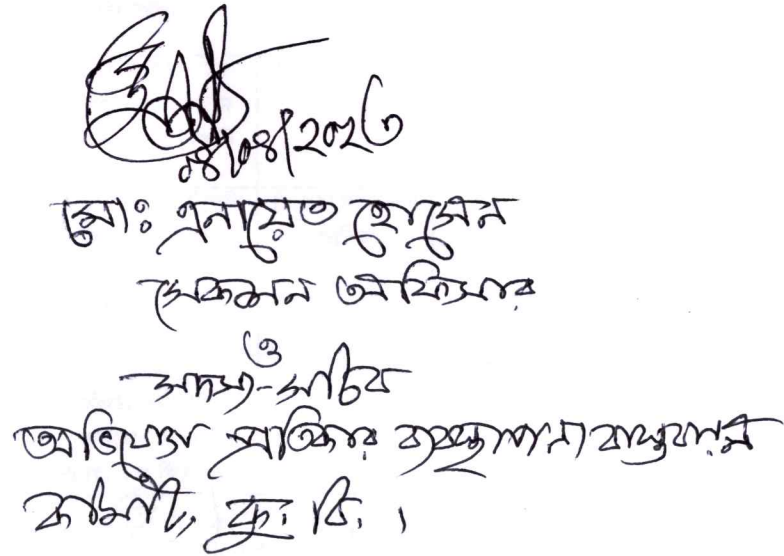 ০৪/০৪/২০২৩
মোঃ এনায়েত হোসেন
সেকশন অফিসার
ও
সদস্য-সচিব
অভিযোগ প্রতিকার ব্যবস্থাপনা বাস্তবায়ন
কমিটি, কু. বি. ।